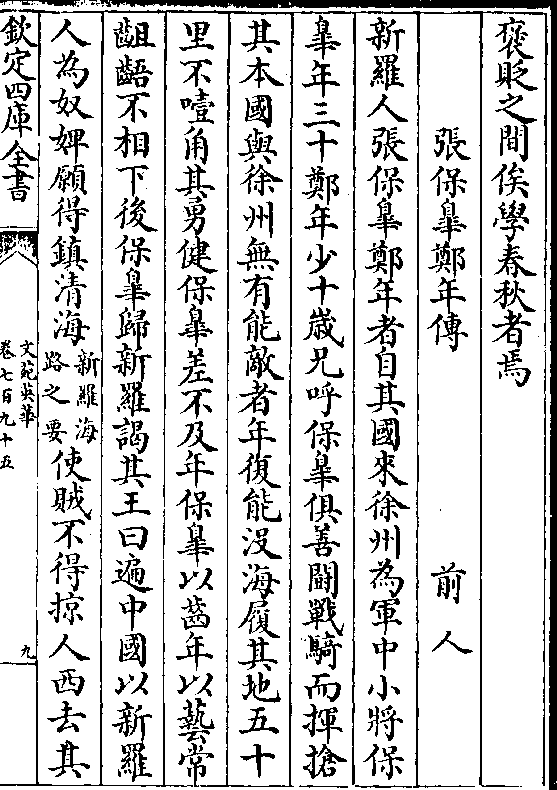 褒貶之間俟學春秋者焉
張保臯鄭年傳　前人
新羅人張保臯鄭年者自其國來徐州為軍中小將保
臯年三十鄭年少十歳兄呼保臯俱善鬬戰騎而揮搶
其本國與徐州無有能敵者年復能沒海履其地五十
里不噎角其勇健保臯差不及年保臯以齒年以藝常
齟齬不相下後保臯歸新羅謁其王曰遍中國以新羅
人為奴婢願得鎮清海新羅海路之要使賊不得掠人西去其
欽定四庫全書
文苑英華
卷七百九十五
九